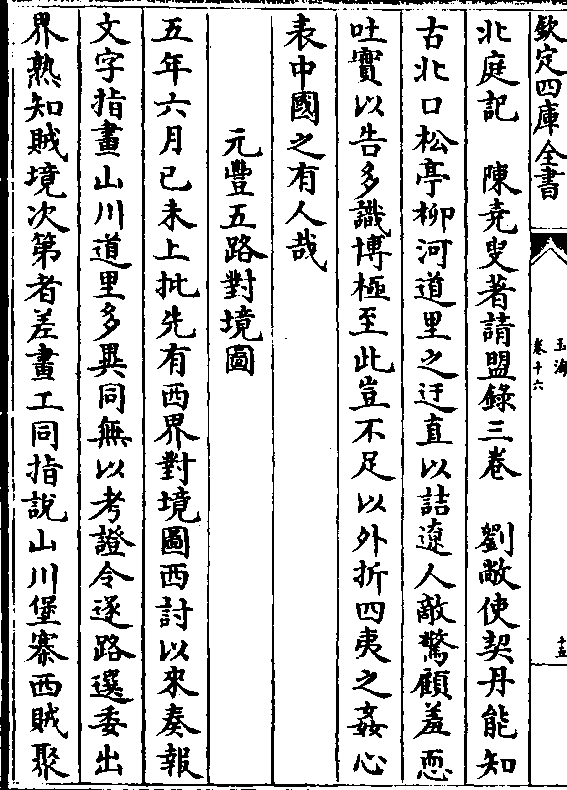 欽定四庫全書
玉海
卷十六
十五
北庭記　陳堯叟著請盟錄三卷　劉敞使契丹能知
古北口松亭柳河道里之迂直以詰遼人敵驚顧羞恧
吐實以告多識博極至此豈不足以外折四夷之姦心
表中國之有人哉
元豐五路對境圖
五年六月己未上批先有西界對境圖西討以來奏報
文字指畫山川道里多異同無以考證令逐路選委出
界熟知賊境次第者差畫工同指說山川堡寨西賊聚